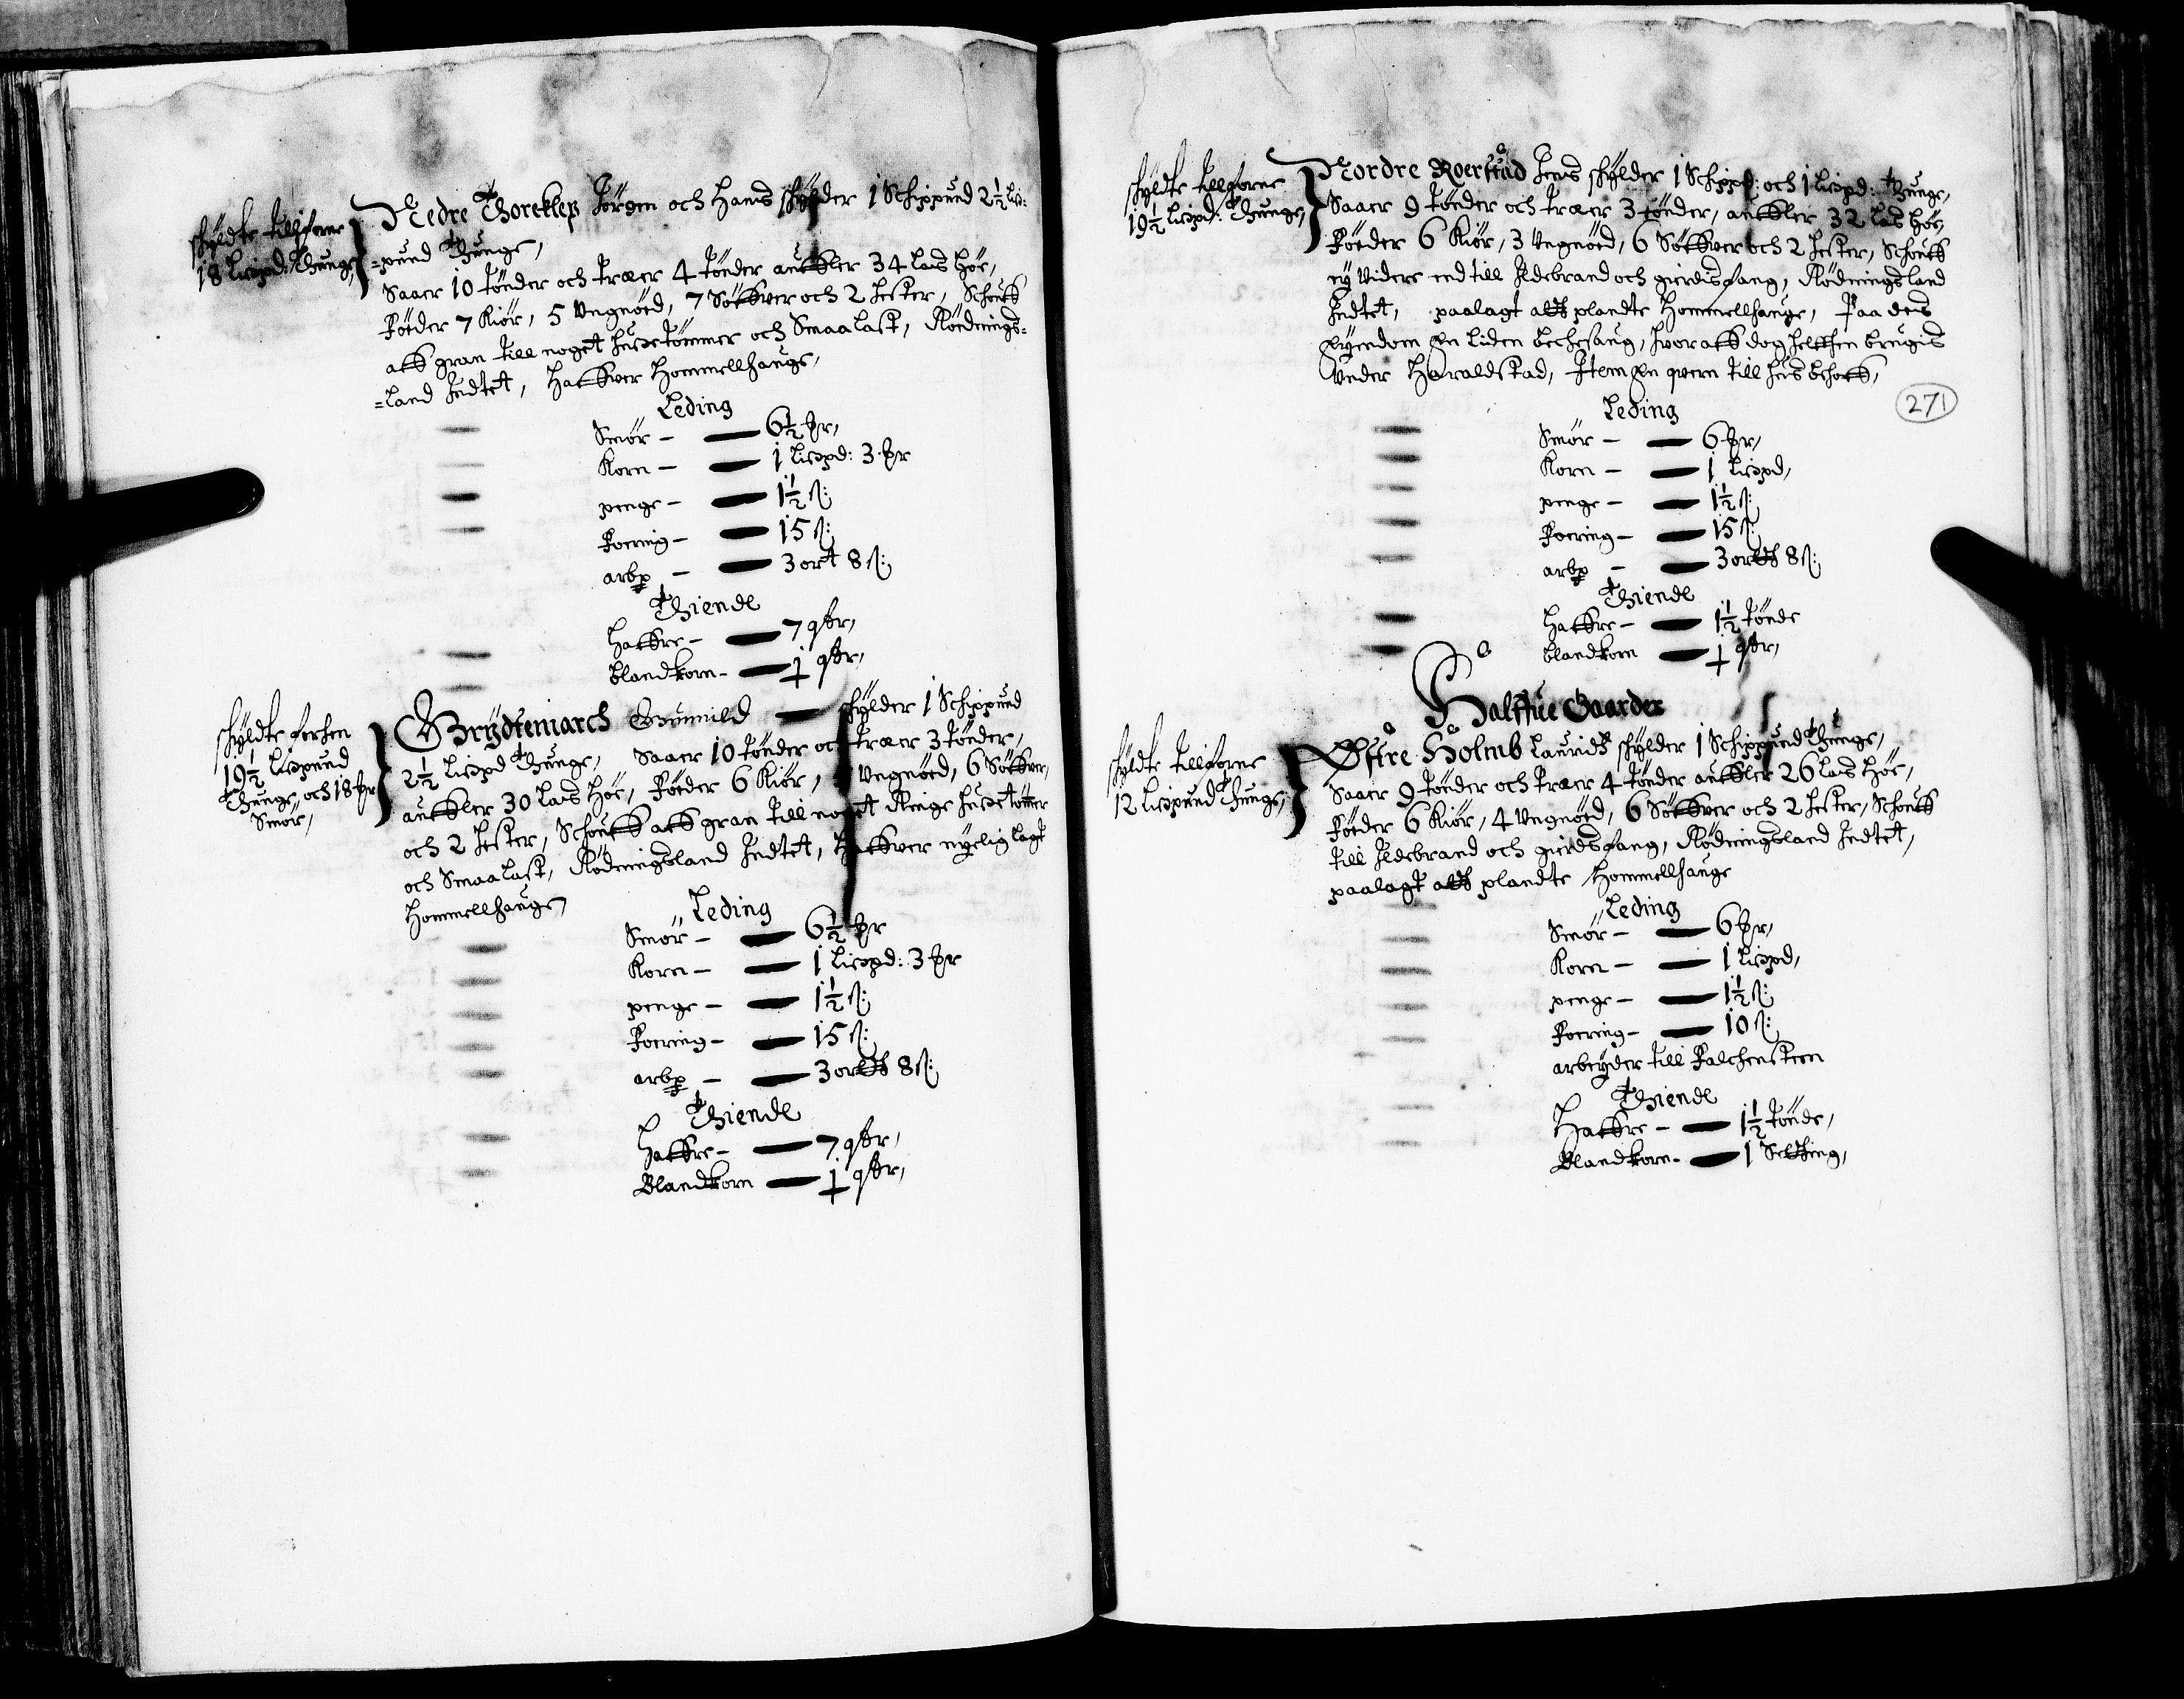 skyldte tillforne
18 Lispd: Thunge
Nedre Thoreklep Jörgen och Hans skylder 1 Schippund 2½ Lis:
=pund Thunge,
Saaer 10 tönder och træer 4 tönder auffler 34 Las höe,
Föeder 7 Kiör, 5 Ungnöed, 7 Söffuer och 2 hester, Schouff
aff gran till noget huusetömmer och Smaa Last, Rödnings=
=land Indtet, haffuer Hommellhauge,
Leding
Smör — 6½ ℔r,
Korn — 1 Lispd: 3 ℔r
penge — 1½ ß:
Foering — 15 ß:
arbp — 3 ort 8 ß:
Thiende
haffre — 7 qtr,
blandkorn — ½ qtr,
skyldte forhen
19½ Lispund
Thunge och 18 ℔r
Smör,
Grydtemarch Gunnild — skylder 1 Schippund
2½ Lispd Thunge, Saaer 10 tönder och træer 3 tönder,
auffler 30 Las höe, Föeder 6 Kiör, Ungnöed, 6 Söffuer,
och 2 hester, Schouff aff gran till noget Ringe huusetömer
och Smaa Last, Rödningsland Indtet, Haffuer nyelig lagt
Hommellhauge,
Leding
Smör — 6½ ℔r
Korn — 1 Lispd: 3 ℔r
penge — 1½ ß:
Foering — 15 ß:
arbp — 3 ordt 8 ß:
Thiende
haffre — 7 qtr,
Blandkorn — ½ qtr,
skyldte tillforne
19½ Lispd: Thunge,
Nordre Roerstad Jens skylder 1 Schippd: och 1 Lispd: Thunge,
Saaer 9 tönder och træer 3 tönder, auffler 32 Las höe,
Föeder 6 Kiör, 3 Ungnöed, 6 Söffuer och 2 hester, Schouff
ey Videre end till Ildebrand och gierdisfang, Rödningsland
Indtet, paalagt att plandte Hommellhauge, Paa dens
Eyendom En liden bechesaug, huor aff dog helfften brugis
Under Haraldstad, Item En quern till huus behoff,
271
Leding
Smör — 6 ℔r,
Korn — 1 Lispd,
penge — 1½ ß:
Foering — 15 ß:
arbp — 3 ordt 8 ß:
Thiende
haffre — 1½ tönde
blandkorn — ½ qtr,
Halffue Gaarder
skyldte tillforne
12 Lispund Thunge,
Østre Holmb Lauridtz skylder 1 Schippund Thunge,
Saaer 9 tönder och træer 4 tönder auffler 26 Las höe,
Föeder 6 Kiör, 4 Ungnöed, 6 Söffuer och 2 hester, Schouff
till Ildebrand och gierdsfang, Rödningsland Indtet,
paalagt att plandte Hommellhauge
Leding
Smör — 6 ℔r,
Korn — 1 Lispd,
penge — 1½ ß:
Foering — 10 ß:
arbeyder till Falchensteen
Thiende
Haffre — 1½ tönde,
Blandkorn — 1 Setting,